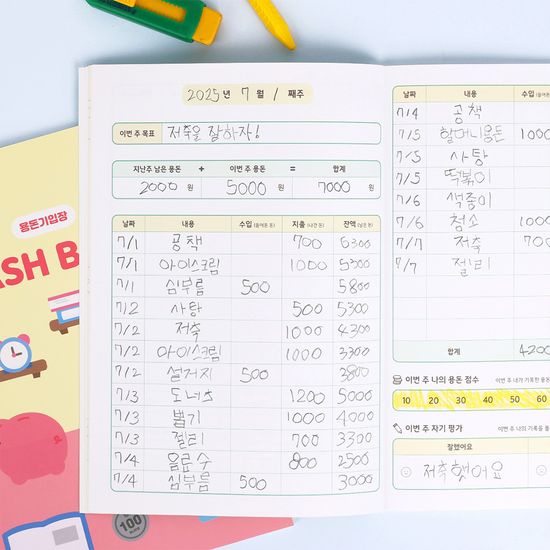 2025년 7월 1째주
이번 주 목표 저축을 잘하자!
지난주 남은 용돈 + 이번 주 용돈 = 합계
2000 원 5000 원 7000 원
날짜 내용 수입 (들어온 돈) 지출 (나간 돈) 잔액 (남은 돈)
7/1 공책 700 6300
7/1 아이스크림 1000 5300
7/1 심부름 500 5800
7/2 사탕 500 5300
7/2 저축 1000 4300
7/2 아이스크림 1000 3300
7/2 설거지 500 3800
7/3 도너츠 1200 5000
7/3 뽑기 1000 4000
7/3 젤리 700 3300
7/4 음료수 800 2500
7/4 심부름 500 3000
날짜 내용 수입 (들어온 돈)
7/4 공책
7/5 할머니용돈 1000
7/5 사탕
7/5 떡볶이
7/6 색종이
7/6 청소 1000
7/7 저축 700
7/7 젤리
합계 4200
이번 주 나의 용돈 점수 이번 주 내가 기록한 용돈
10 20 30 40 50 60
이번 주 자기 평가 이번 주 나의 기록을 돌
잘했어요
저축했어요
용돈기입장
ASH B
100